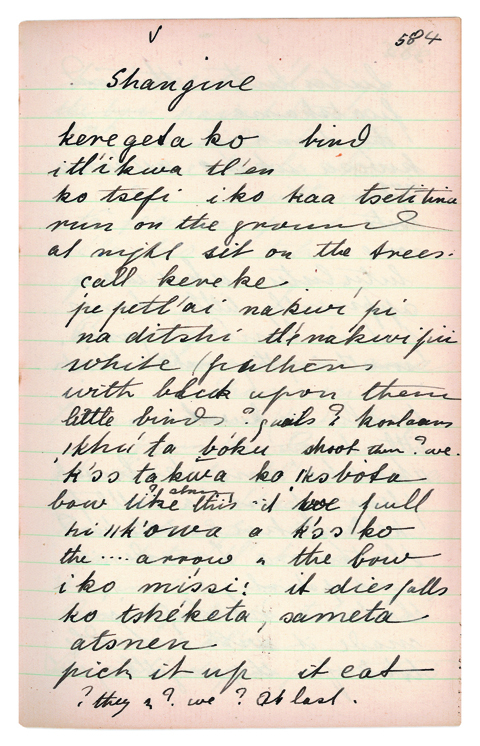 584
Shangine
keregeta ko bird
itl'ikwa tl'en
ko tsefi iko kaa tsetitina
run on the ground
at night sit on the trees.
call kereke
pe petl'ai nakwi pi
na ditshi tl'enakwi pii
white feathers
with black upon them
little birds ? quails ? korlaans
khu ta boku shoot them ? we.
k'ss takwa ko ksbota
bow like this it we pull
hi ||k'owa a k'ss ko
the .... arrow " the bow
iko missi: it dies falls
ko tshéketa, sameta
atsnen
pick it up it eat
? they " ? we ? at last.